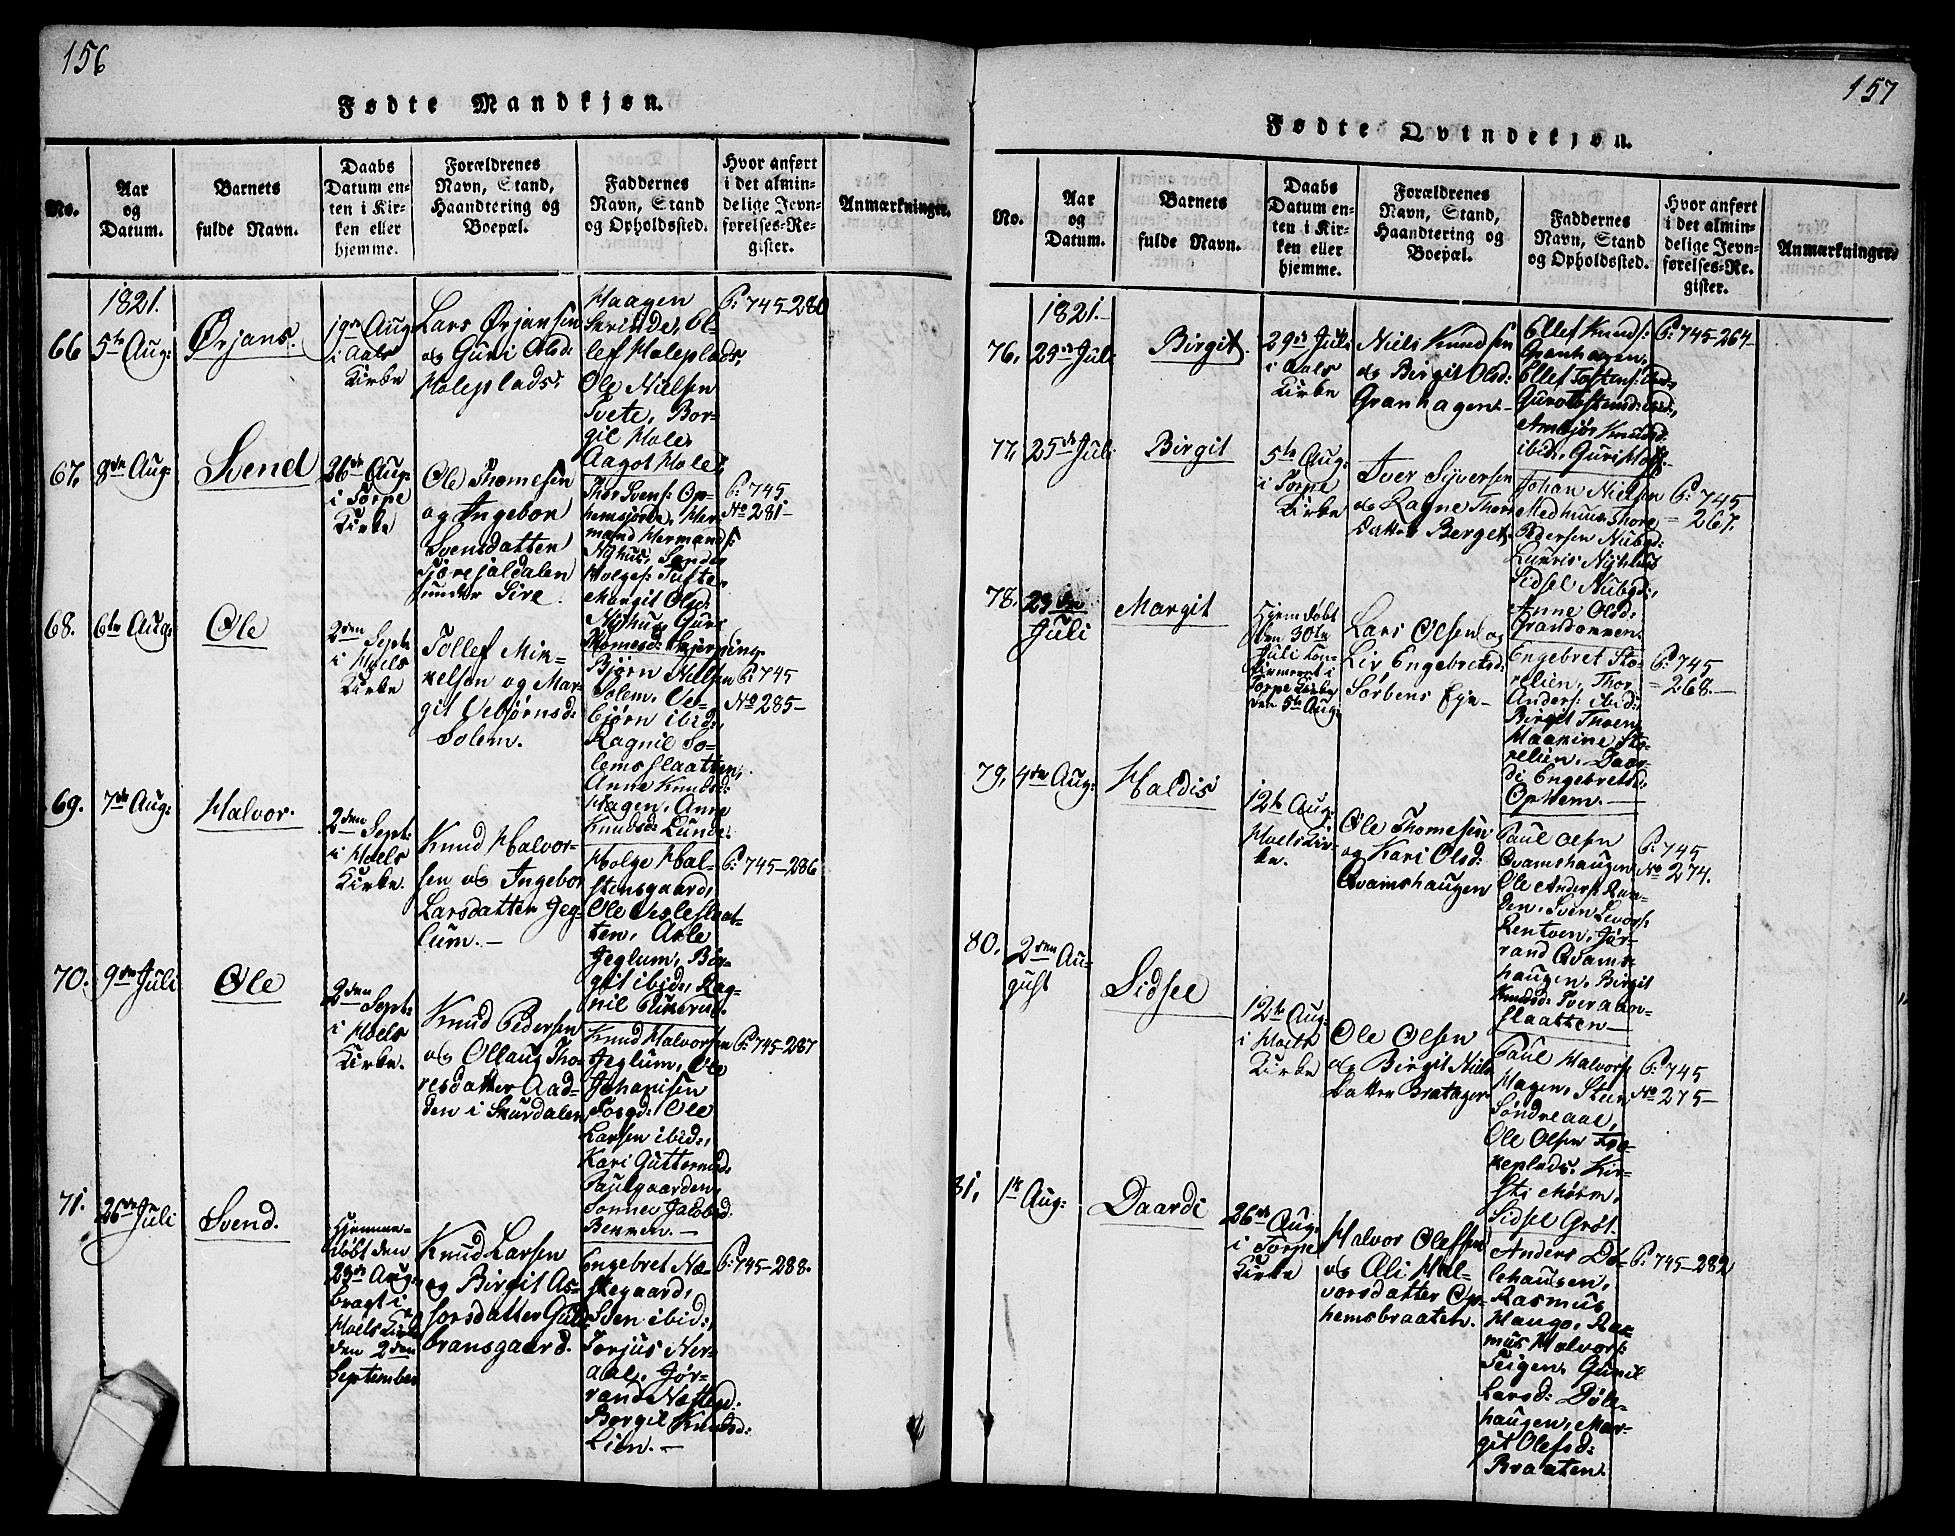 156
Fødte Mandkjøn.
No.
Aar
og
Datum.
Barnets
fulde Navn.
Daabs
Datum en-
ten i Kir-
ken eller
hjemme.
Forældrenes
Navn, Stand,
Haandtering og
Boepæl.
Faddernes
Navn, Stand
og Opholdssted.
Hvor anført
i det almin-
delige Jevn-
førelses-Re-
gister.
Anmærkninger.
1821.
66
5te Aug:
Ørjans.
19de Aug
i Aals
Kirke
Lars Ørjansen
og Guri Olsd:
Holeplads.
Haagen
Svinde, El-
lef Holeplads,
Ole Nielsen
Tvete, Bor-
gil Hole,
Aagot Hole,
P: 745-280
67.
8de Aug:
Svend
26de Aug:
i Torpe
Kirke
Ole Thomesen
og Ingebor
Svensdatter
under Lire.
Thor Svens: Op-
hemsjorde, Her-
mand Hermands:
Nyhus, Sander
Holges: Tufte
Margit Olsd:
Nyhus, Guri
Thomesd:
P: 745
No 281-
68.
6te Aug:
Ole
2den Sept:
i Hoels
Kirke
Tollef Mik-
kelsen og Mar-
git Vebjørnsd:
Solem.
Bjørn Nielsen
Solem, Ve-
bjørn ibid:,
Ragnil So-
lemsslaatten,
Anne Knudsd:
Hagen, Anne
Knudsd: Lunde.
P: 745
No 285-
69.
7de Aug:
Halvor.
2den Sept:
i Hoels
Kirke.
Knud Halvor-
sen og Ingebor
Larsdatter Jeg-
lum.-
Holge Hal-
stensgaard,
Ole Vesleslaat-
ten, Asle
Jeglum, Bir-
git ibid:, Rag-
nil
P: 745-286
70.
9de Juli
Ole
2den Sept:
i Hoels
Kirke.
Knud Pedersen
og Ollaug Tho-
resdatter Aad-
den i Skurdalen
Knud Halvorsen
Jeglum, Ole
Johanisen
Ole
Larsen ibid:,
Kari Guttormsd:
Paulgaarden,
Jacobsd:
P: 745-287
71.
26de Juli
Svend.
Hjemme-
døbt den
23de Aug:
bragt i
Hoels Kirke
den 2den
September
Knud Larsen
og Birgit As-
forsdatter Gul-
bransgaard.
Engebret Næ-
stegaard,
Sven ibid:,
Torjus Ner-
aal, Jør-
rand
Borgil Knudsd:
Lien.-
P: 745-288.
157
Fødte Qvindekjøn.
No.
Aar
og
Datum.
Barnets
fulde Navn.
Daabs
Datum en-
ten i Kir-
ken eller
hjemme.
Forældrenes
Navn, Stand,
Haandtering og
Boepæl.
Faddernes
Navn, Stand
og Opholdssted.
Hvor anført
i det almin-
delige Jevn-
førelses-Re-
gister.
Anmærkninger
1821.-
76.
29de Juli
Birgit.
29de Juli
i Aals
Kirke
Niels Knudsen
og Birgit Olsd:
Granhagen.-
Ellef Knuds:
Granhagen,
Ellef Tostens: ibid:,
Guro Tostensd: ibid:,
Ambjør Knudsd:
ibid:, Guri
P: 745-264-
77.
25de Juli
Birgit
5te Aug:
i Torpe
Kirke
Iver Syversen
og Ragne Thors-
datter Berget.
Johan Nielsen
Medhuus, Thore
Pedersen Nubgd:
Lauris Nyhuus
Sidsel Nubgd:,
Anne Olsd:
P: 745
= 267.
78.
23de
Juli
Margit
Hjemdøbt
den 30te
Juli Con-
firmeret i
Torpe Kirke
den 5te Aug:
Lars Olsen og
Liv Engebretsd:
Sorbens Eje-
Engebret Sto-
relien, Thor
Anders: ibid:
Birgit Thoen,
Haakine Sto-
relien. Daar-
di Engebretsd:
Ophem.-
P: 745
= 268.-
79.
4de Aug:
Haldis
12te Aug:
Hoels Kir-
ke.
Ole Thomesen
og Kari Olsd:
Qvamshaugen
Paul Olsen
Qvamshaugen
Ole Anders: Raa-
den, Sven Levors:
Rentven, Jør-
rand Qvams-
haugen, Birgit
Knudsd: Tveraan-
slaatten-
P: 745
No 274.
80.
2den Au-
gust
Sidsel
12te Aug:
i Hoels
Kirke
Ole Olsen
og Birgit Niels-
datter Bratager
Paul Halvors:
Hagen, Sten
Søndreaal,
Ole Olsen
Kir-
sti
Sidsel Grøt.
P: 745
No 275-
81.
1te Aug:
Daardi
26de Aug:
i Torpe
Kirke
Halvor Olefsen
og Ali Hal-
vorsdatter Op-
hemsbraaten.
Anders Dø-
lehaugen,
Rasmus
Haugo, Ras-
mus Halvors:
Teigen, Gunil
Larsd: Døle-
haugen, Mar-
git Olefsd:
Braaten.
P: 745-282